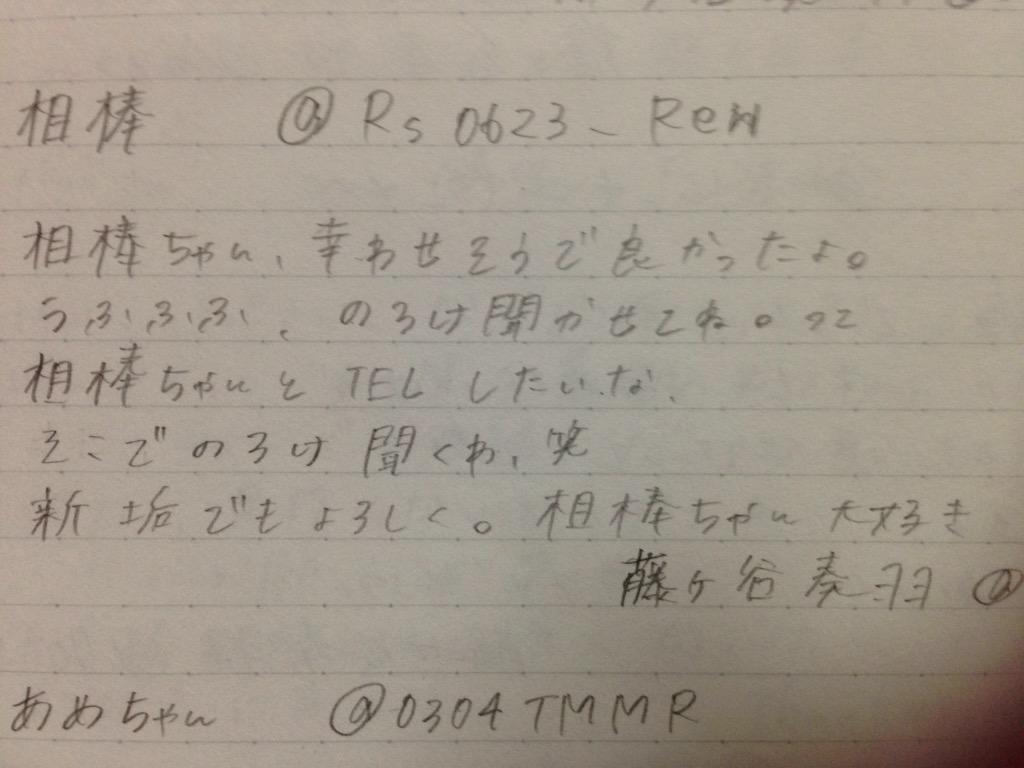 相棒 @Rs0623_Ren
相棒ちゃん、幸わせそうで良かったよ。
うふふふ、のろけ聞かせてね。って
相棒ちゃんとTELしたいな、
そこでのろけ聞くわ、笑
新垢でもよろしく。相棒ちゃん大好き
藤ヶ谷奏羽 @
あめちゃん @0304TMMR